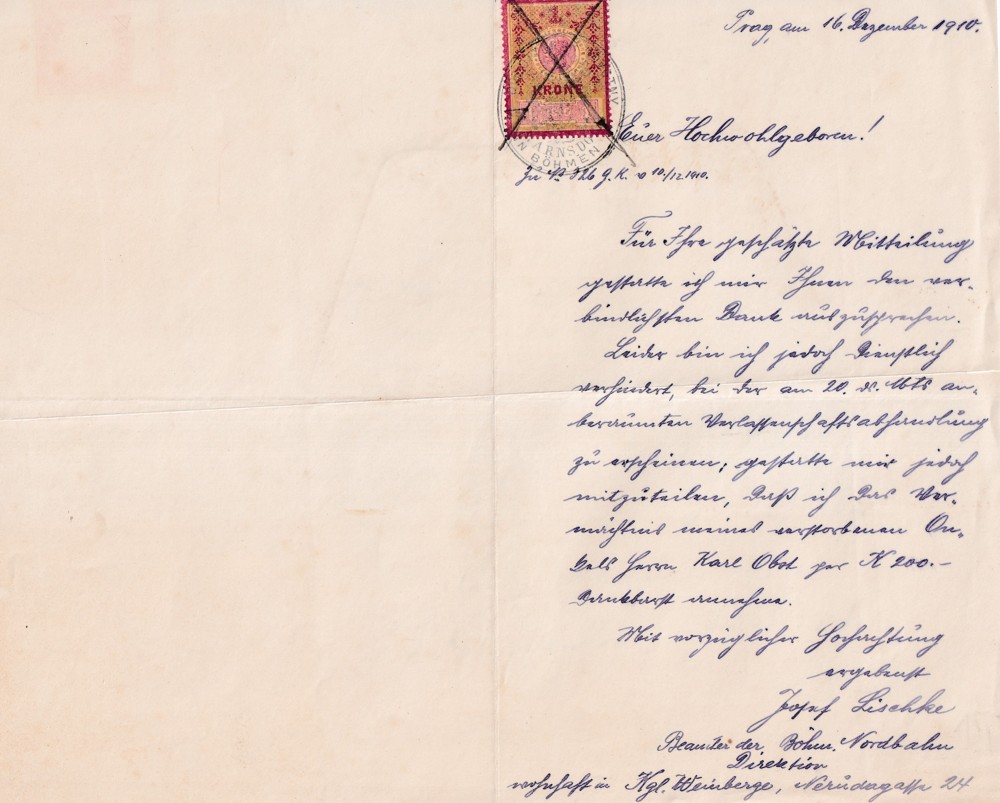 1
KRONE
ARNSDO
N BÖHMEN
Prag, am 16. Dezember 1910.
Euer Hochwohlgeboren!
Zu № 326 G. K. v 10./12.1910.
Für Ihre geschätzte Mitteilung
gestatte ich mir Ihnen den ver-
bindlichsten Dank auszusprechen.
Leider bin ich jedoch dienstlich
verhindert, bei der am 20. ds. Mts an-
beraumten Verlassenschaftsabhandlung
zu erscheinen; gestatte mir jedoch
mitzuteilen, daß ich das Ver-
mächtnis meines verstorbenen On-
kels Herrn Karl Obst per K 200.-
dankbarst annehme.
Mit vorzüglicher Hochachtung
ergebenst
Josef Lischke
Beamter der Böhm. Nordbahn
Direktion
wohnhaft in Kgl. Weinberge, Nerudagasse 24